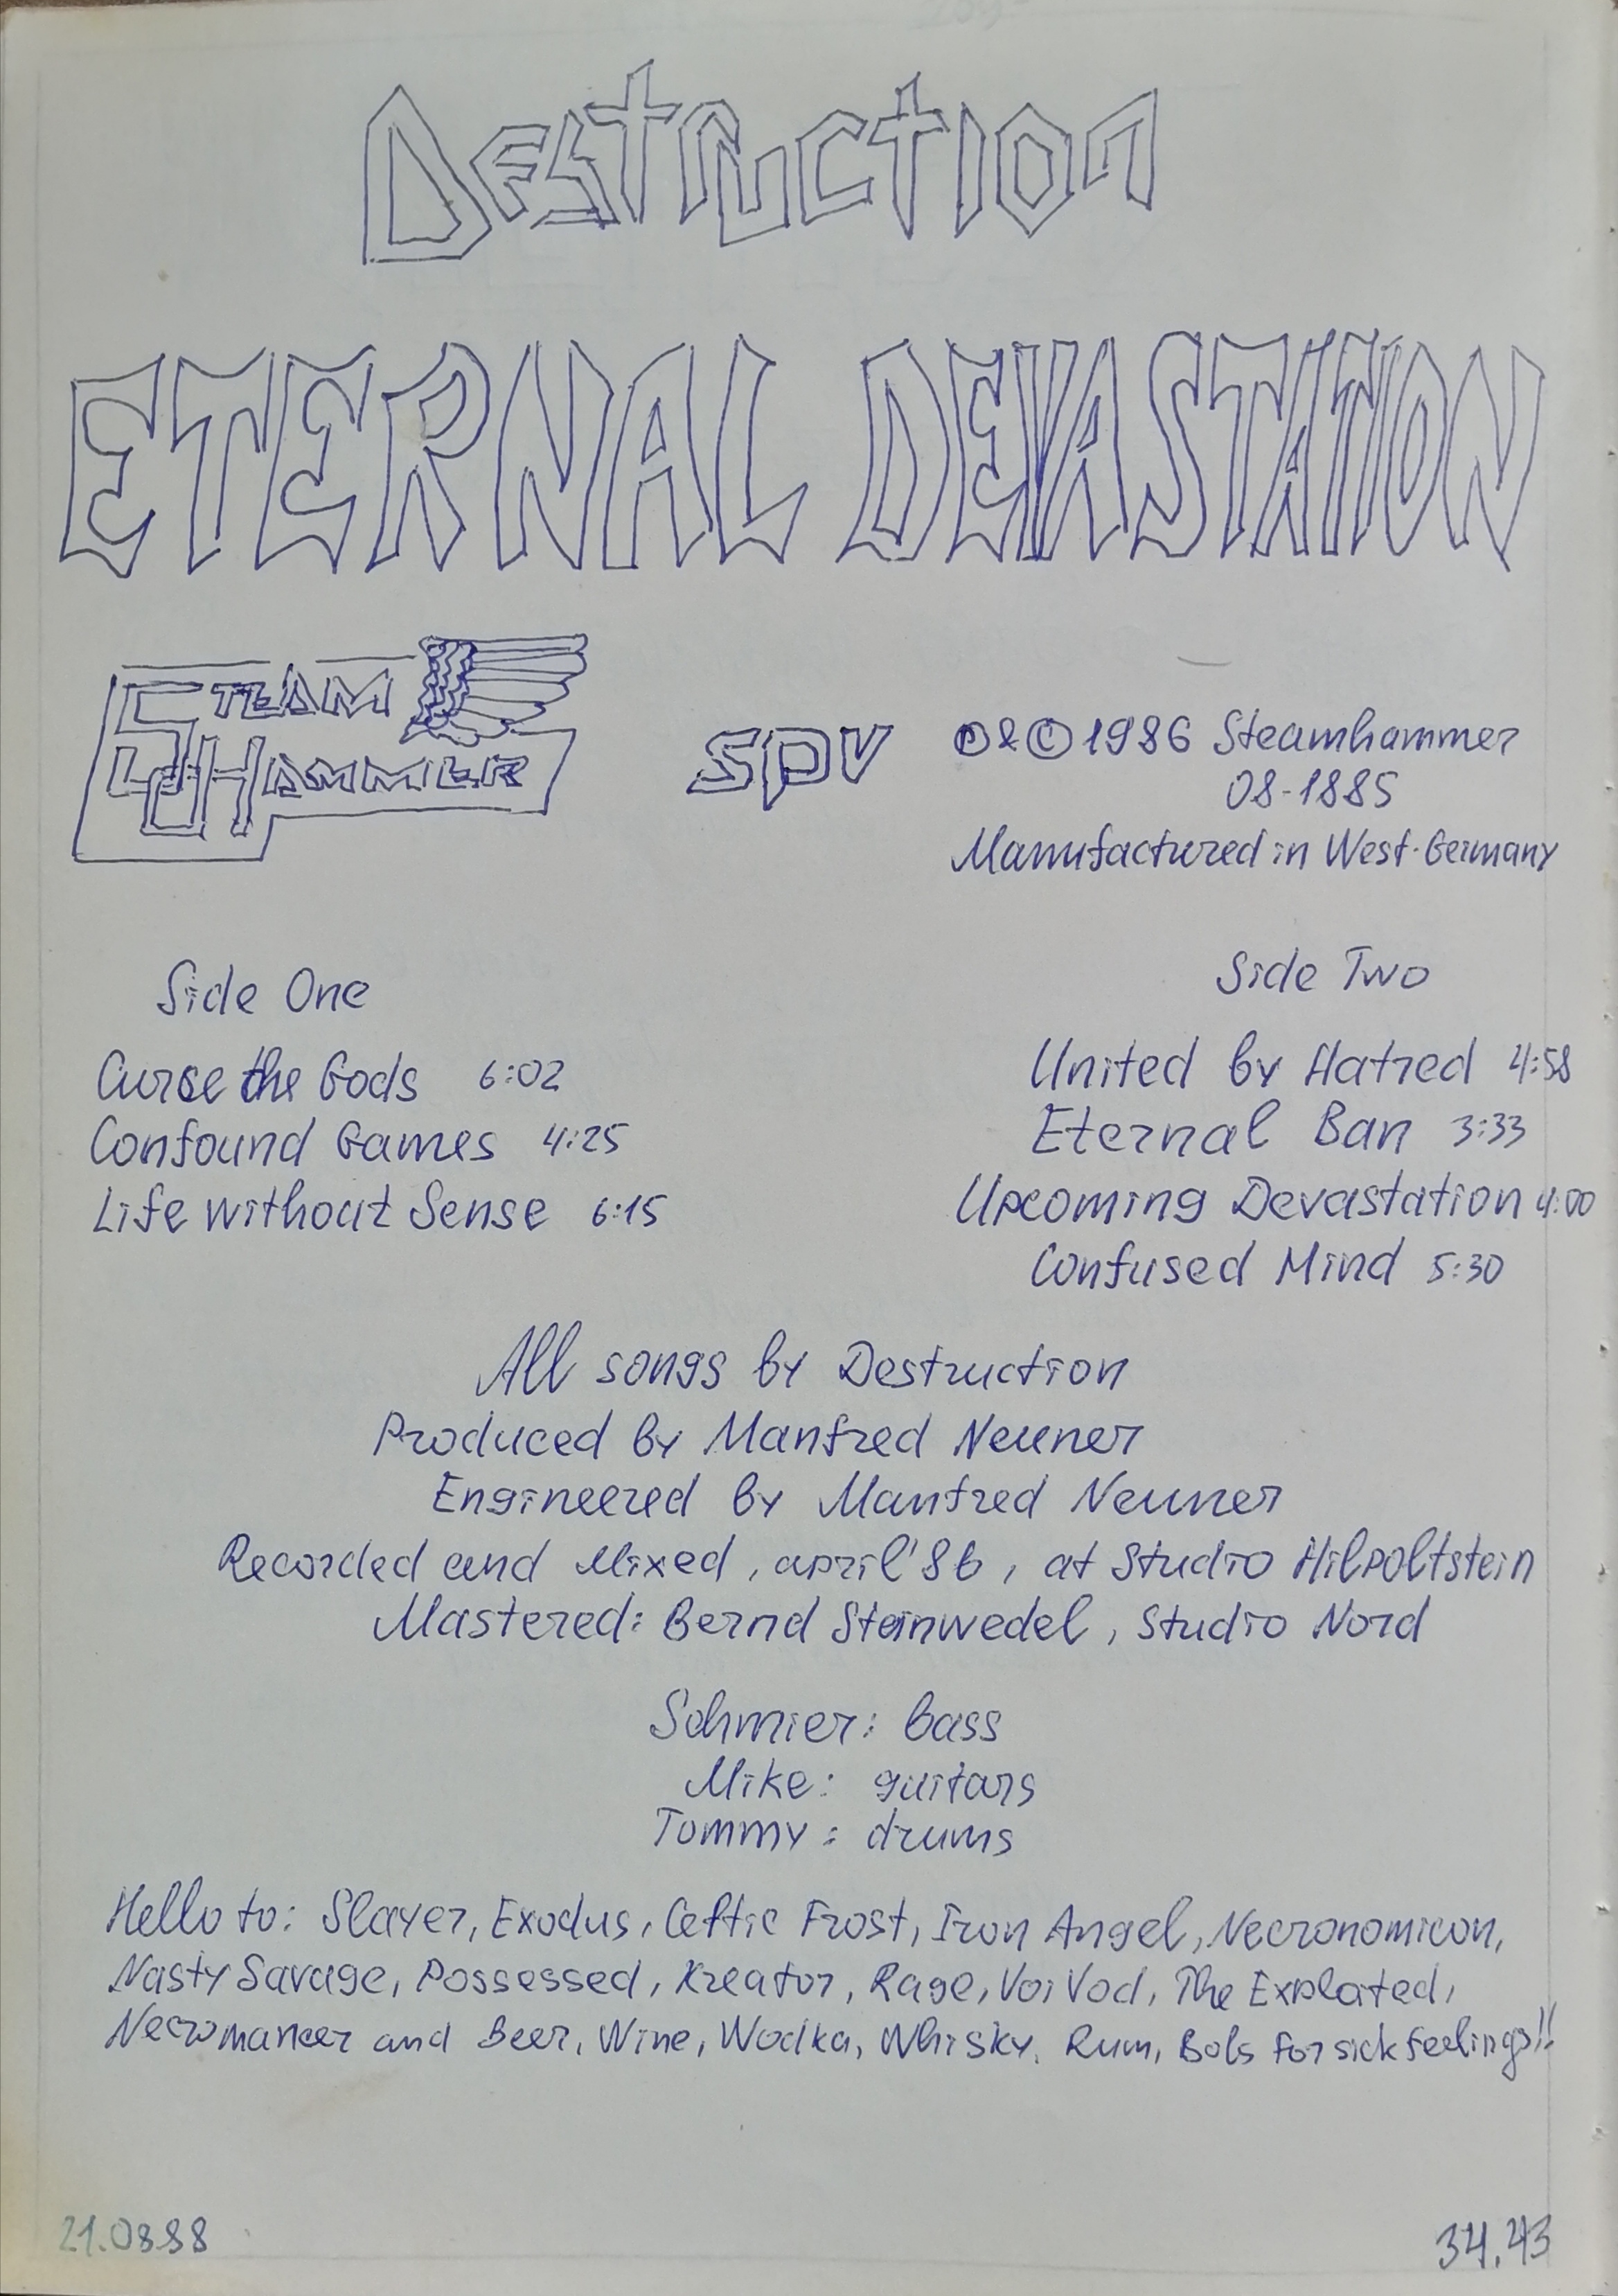 Destruction
ETERNAL DEVASTATION
STEAM
HAMMER
SPV
Ⓟ & © 1986 Steamhammer
08-1885
Manufactured in West-Germany
Side One
Curse the Gods 6:02
Confound Games 4:25
Life without Sense 6:15
Side Two
United by Hatred 4:58
Eternal Ban 3:33
Upcoming Devastation 4:00
Confused Mind 5:30
All songs by Destruction
Produced by Manfred Neuner
Engineered by Manfred Neuner
Recorded and Mixed, april'86, at Studio Hilpoltstein
Mastered: Bernd Steinwedel, Studio Nord
Schmier: bass
Mike: guitars
Tommy: drums
Hello to: Slayer, Exodus, Celtic Frost, Iron Angel, Necronomicon,
Nasty Savage, Possessed, Kreator, Rage, VoiVod, The Exploited,
Necromancer and Beer, Wine, Wodka, Whisky, Rum, Bols for sick feelings!!
21.08.88
34.43